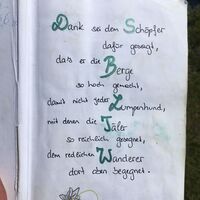 Dank sei dem Schöpfer
dafür gesagt,
dass er die Berge
so hoch gemacht,
damit nicht jeder Lumpenhund,
mit denen die Täler
so reichlich gesegnet,
dem redlichen Wanderer
dort oben begegnet.